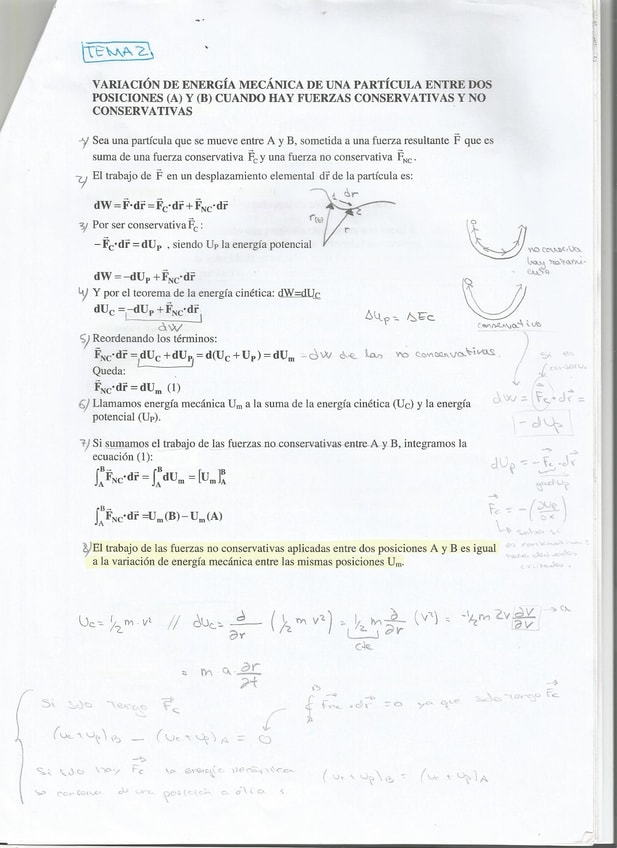 TEMA 2.
VARIACIÓN DE ENERGÍA MECÁNICA DE UNA PARTÍCULA ENTRE DOS
POSICIONES (A) Y (B) CUANDO HAY FUERZAS CONSERVATIVAS Y NO
CONSERVATIVAS
1) Sea una partícula que se mueve entre A y B, sometida a una fuerza resultante F⃗ que es
suma de una fuerza conservativa F⃗C y una fuerza no conservativa F⃗NC .
2) El trabajo de F⃗ en un desplazamiento elemental dr⃗ de la partícula es:
dW = F⃗·dr⃗ = F⃗C·dr⃗ + F⃗NC·dr⃗
3) Por ser conservativa F⃗C :
−F⃗C·dr⃗ = dUP , siendo UP la energía potencial
dW = −dUP + F⃗NC·dr⃗
no conserva
hay rozami-
ento
4) Y por el teorema de la energía cinética: dW=dUC
dUC = −dUP + F⃗NC·dr⃗
dW
ΔUp = ΔEc
conservativo
5) Reordenando los términos:
F⃗NC·dr⃗ = dUC + dUP = d(UC + UP) = dUm - dW de las no conservativas.
Queda:
F⃗NC·dr⃗ = dUm (1)
Si es
conserv.
dW = F⃗c·dr⃗ =
- dUp
6) Llamamos energía mecánica Um a la suma de la energía cinética (UC) y la energía
potencial (UP).
7) Si sumamos el trabajo de las fuerzas no conservativas entre A y B, integramos la
ecuación (1):
∫AB F⃗NC·dr⃗ = ∫AB dUm = [Um]AB
dUp = -F⃗c·dr⃗
∫AB F⃗NC·dr⃗ =Um(B) − Um(A)
F⃗c = -(∂Up/∂x)
8) El trabajo de las fuerzas no conservativas aplicadas entre dos posiciones A y B es igual
a la variación de energía mecánica entre las mismas posiciones Um.
Uc = 1/2 m·v² // dUc = d/∂r (1/2 m v²) = 1/2 m ∂/∂r (v²) = 1/2 m 2v ∂v/∂v → a
cte
= m a · ∂r/∂t
Si solo tengo F⃗c
∫AB F⃗nc·dr⃗ = 0 ya que solo tengo F⃗c
(Uc + Up)B - (Uc + Up)A = 0
Si solo hay F⃗c la energía mecánica (Uc + Up)B = (Uc + Up)A
se conserva de una posición a otra